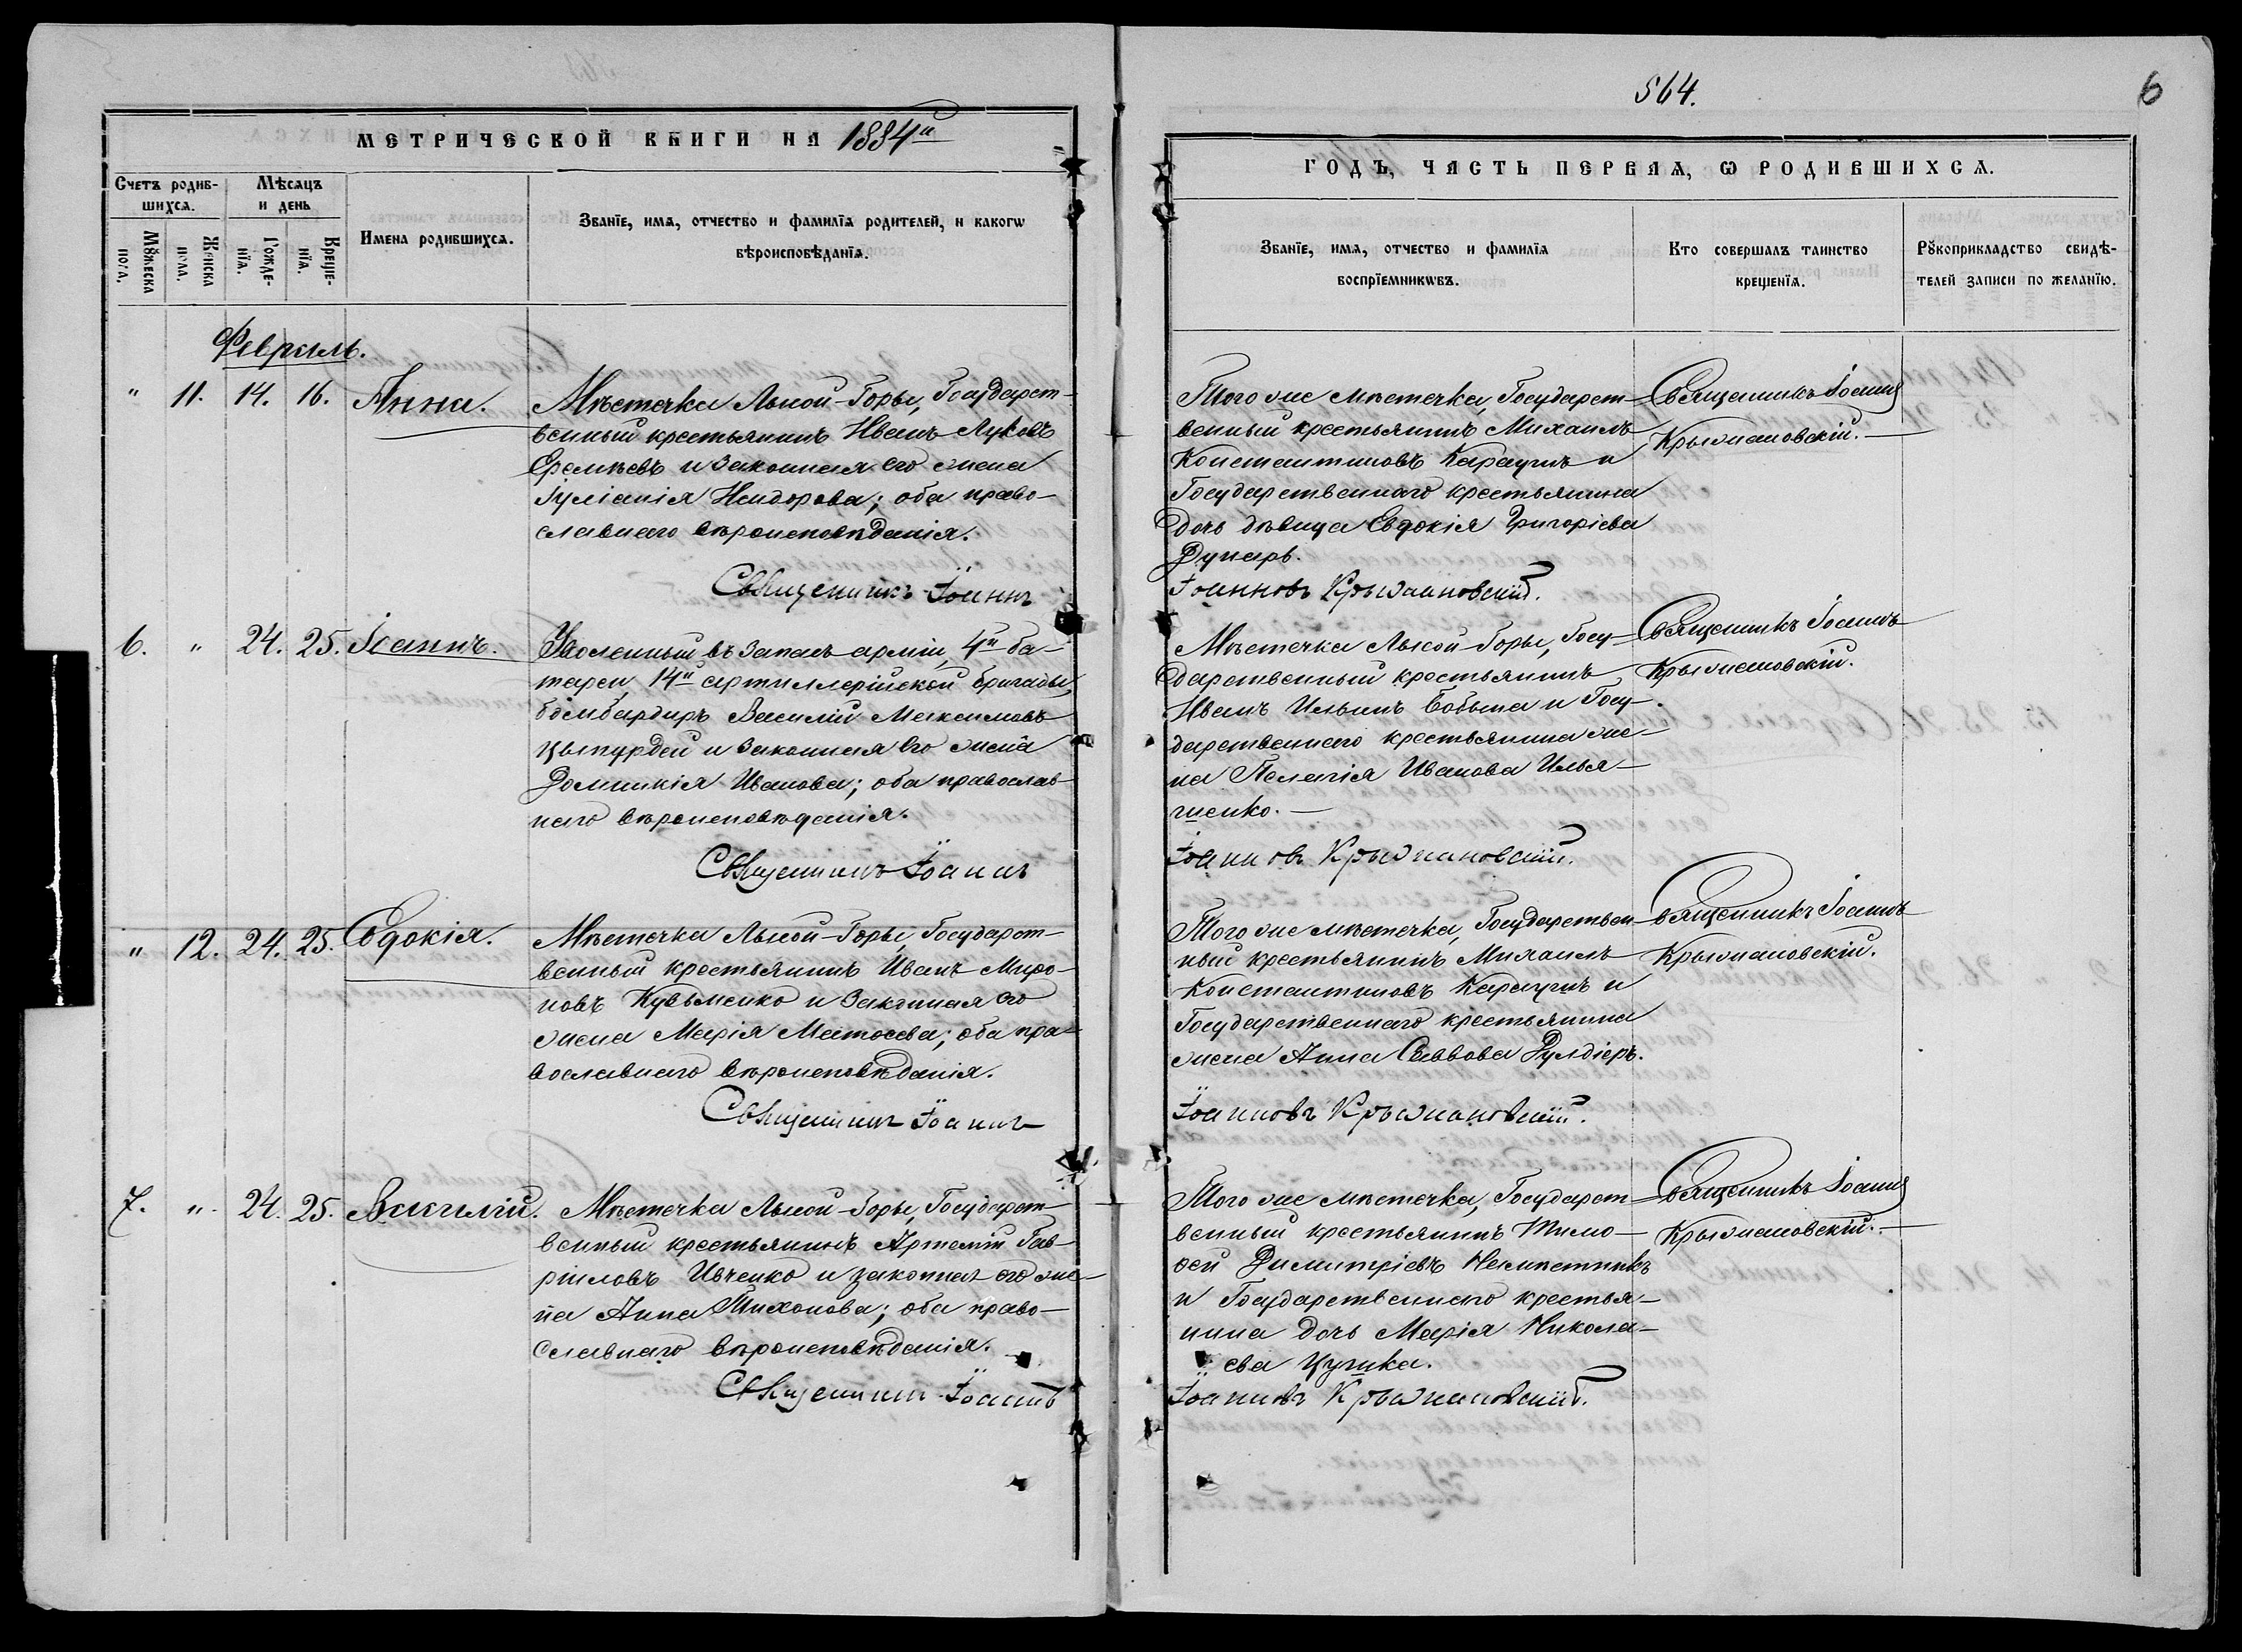 564.
6
МЕТРИЧЕСКОЙ КНИГИ НА 1884й
ГОДЪ, ЧАСТЬ ПЕРВАЯ, Ѡ РОДИВШИХСЯ.
Счетъ родив-
шихся.
Мѣсяцъ
и день
Мꙋжеска
пола.
Женска
пола.
Рожде-
нїя.
Креще-
нїя.
Имена родившихся.
Званїе, имя, отчество и фамилїя родителей, и какогѡ
вѣроисповѣданїя.
Званїе, имя, отчество и фамилїя
воспрїемникѡвъ.
Кто совершалъ таинство
крещенїя.
Рꙋкоприкладство свидѣ-
телей записи по желанїю.
Февраль.
" 11. 14. 16. Анна.
Мѣстечка Лысой-Горы, Государст-
венный крестьянинъ Иванъ Луковъ
Еремѣевъ и законная его жена
Іуліанія Исидорова; оба право-
славнаго вѣроисповѣданія.
Священникъ Іоаннъ
Того же мѣстечка, Государст-
венный крестьянинъ Михаилъ
Константиновъ Караушъ и
Государственнаго крестьянина
дочь дѣвица Евдокія Григоріева
Дунаръ.
Іоанновъ Крыжановскій.
Священникъ Іоаннъ
Крыжановскій.
6. " 24. 25. Іоаннъ.
Уволенный въ запасъ арміи, 4й ба-
тареи, 14й артиллерійской бригады,
бомбардиръ Василій Максимовъ
Цыпурдей и законная его жена
Домникія Иванова; оба православ-
наго вѣроисповѣданія.
Священникъ Іоаннъ
Мѣстечка Лысой-Горы, Госу-
дарственный крестьянинъ
Иванъ Ильинъ Бобына и Госу-
дарственнаго крестьянина же-
на Пелагія Иванова Илья-
шенко.
Іоанновъ Крыжановскій.
Священникъ Іоаннъ
Крыжановскій.
" 12. 24. 25. Евдокія.
Мѣстечка Лысой-Горы, Государст-
венный крестьянинъ Иванъ Миро-
новъ Кузьменко и законная его
жена Марія Матѳеева; оба пра-
вославнаго вѣроисповѣданія.
Священникъ Іоаннъ
Того же мѣстечка, Государствен-
ный крестьянинъ Михаилъ
Константиновъ Караушъ и
Государственнаго крестьянина
жена Анна Саввова Дулдіеръ.
Іоанновъ Крыжановскій.
Священникъ Іоаннъ
Крыжановскій.
7. " 24. 25. Василій.
Мѣстечка Лысой-Горы, Государст-
венный крестьянинъ Артемій Гав-
ріиловъ Ивченко и законная его же-
на Анна Тихонова; оба право-
славнаго вѣроисповѣданія.
Священникъ Іоаннъ
Того же мѣстечка, Государст-
венный крестьянинъ Тимо-
ѳей Димитріевъ Намѣстникъ
и Государственнаго крестья-
нина дочь Марія Никола-
ева Цушка.
Іоанновъ Крыжановскій.
Священникъ Іоаннъ
Крыжановскій.